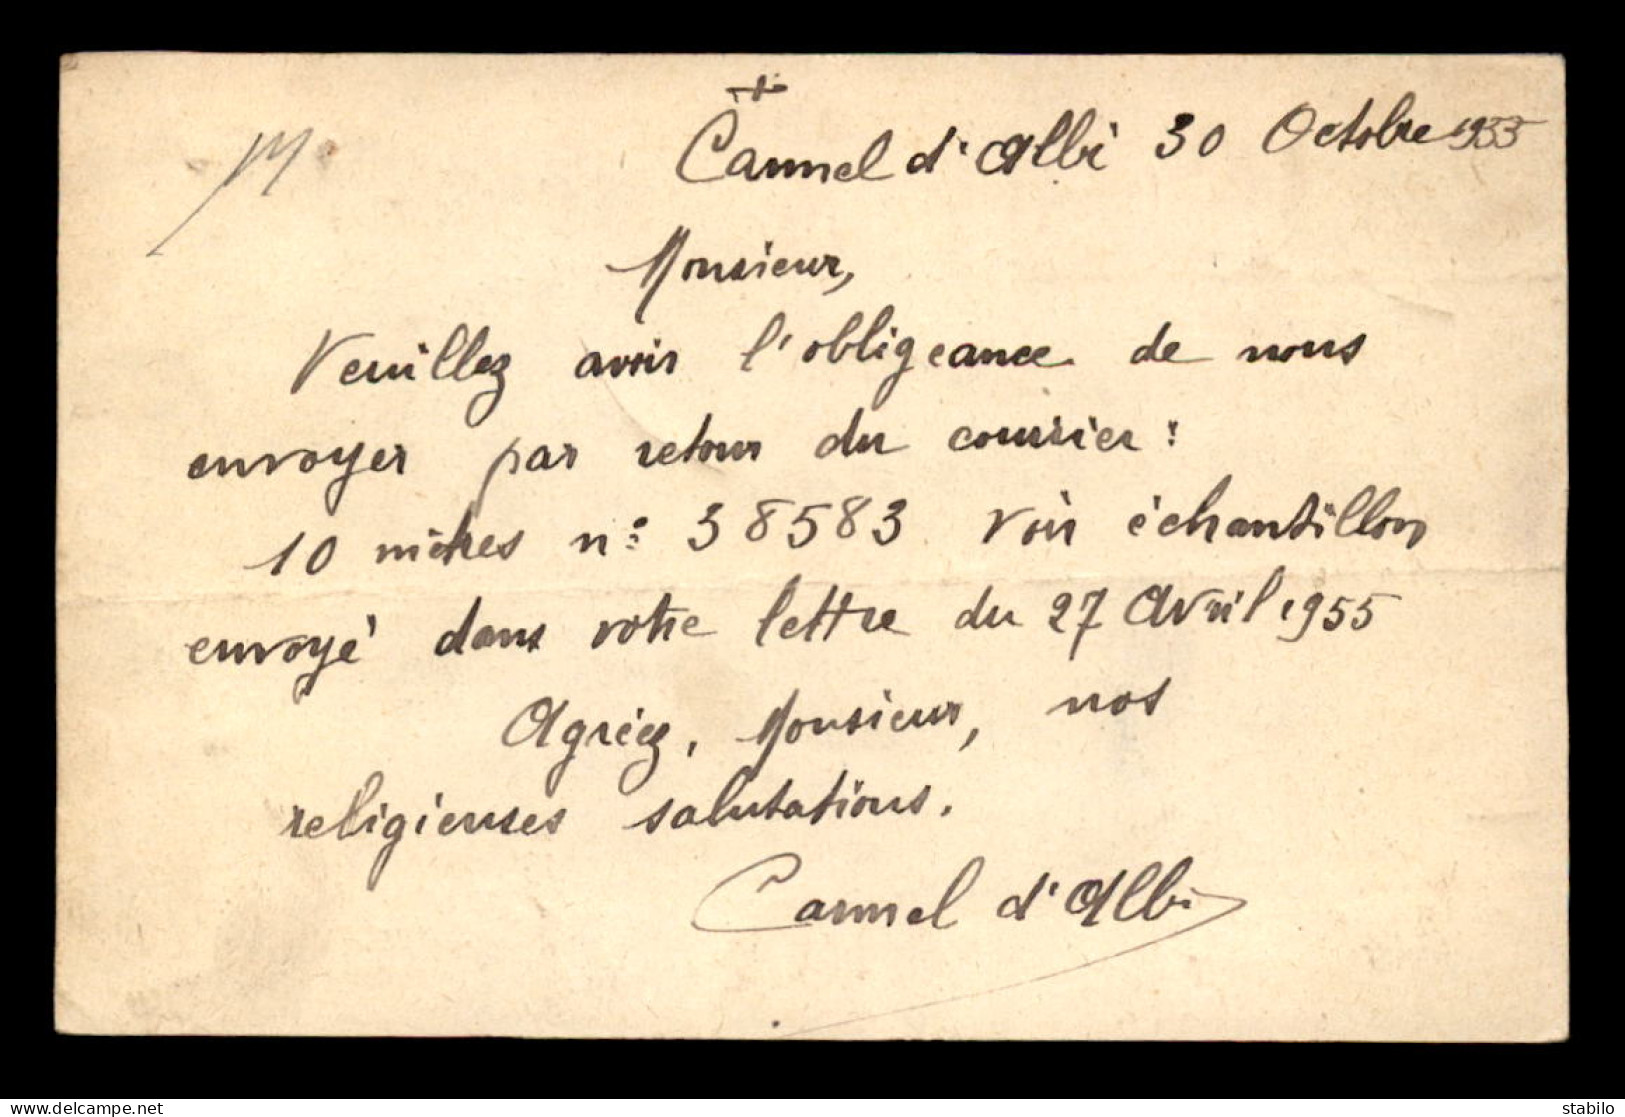 Carmel d'Albi 30 Octobre 1955
Monsieur,
Veuillez avoir l'obligeance de nous
envoyer par retour du courrier :
10 mètres n° 38583 voir échantillon
envoyé dans votre lettre du 27 Avril 1955
Agréez, Monsieur, nos
religieuses salutations.
Carmel d'Albi
stabilo